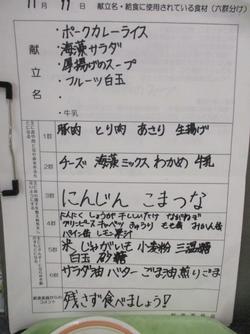 11月 11日 献立名・給食に使用されている食材（六群分け）
献立名
・ポークカレーライス
・海藻サラダ
・厚揚げのスープ
・フルーツ白玉
・牛乳
1群 豚肉 とり肉 あさり 生揚げ
2群 チーズ 海藻ミックス わかめ 牛乳
3群 にんじん こまつな
4群 にんにく しょうが 干ししいたけ ながねぎ
グリンピース キャベツ きゅうり もも缶 みかん缶
パイン缶 レモン果汁
5群 米 じゃがいも 小麦粉 三温糖
白玉 砂糖
6群 サラダ油 バター ごま油 煎りごま
残さず食べましょう!